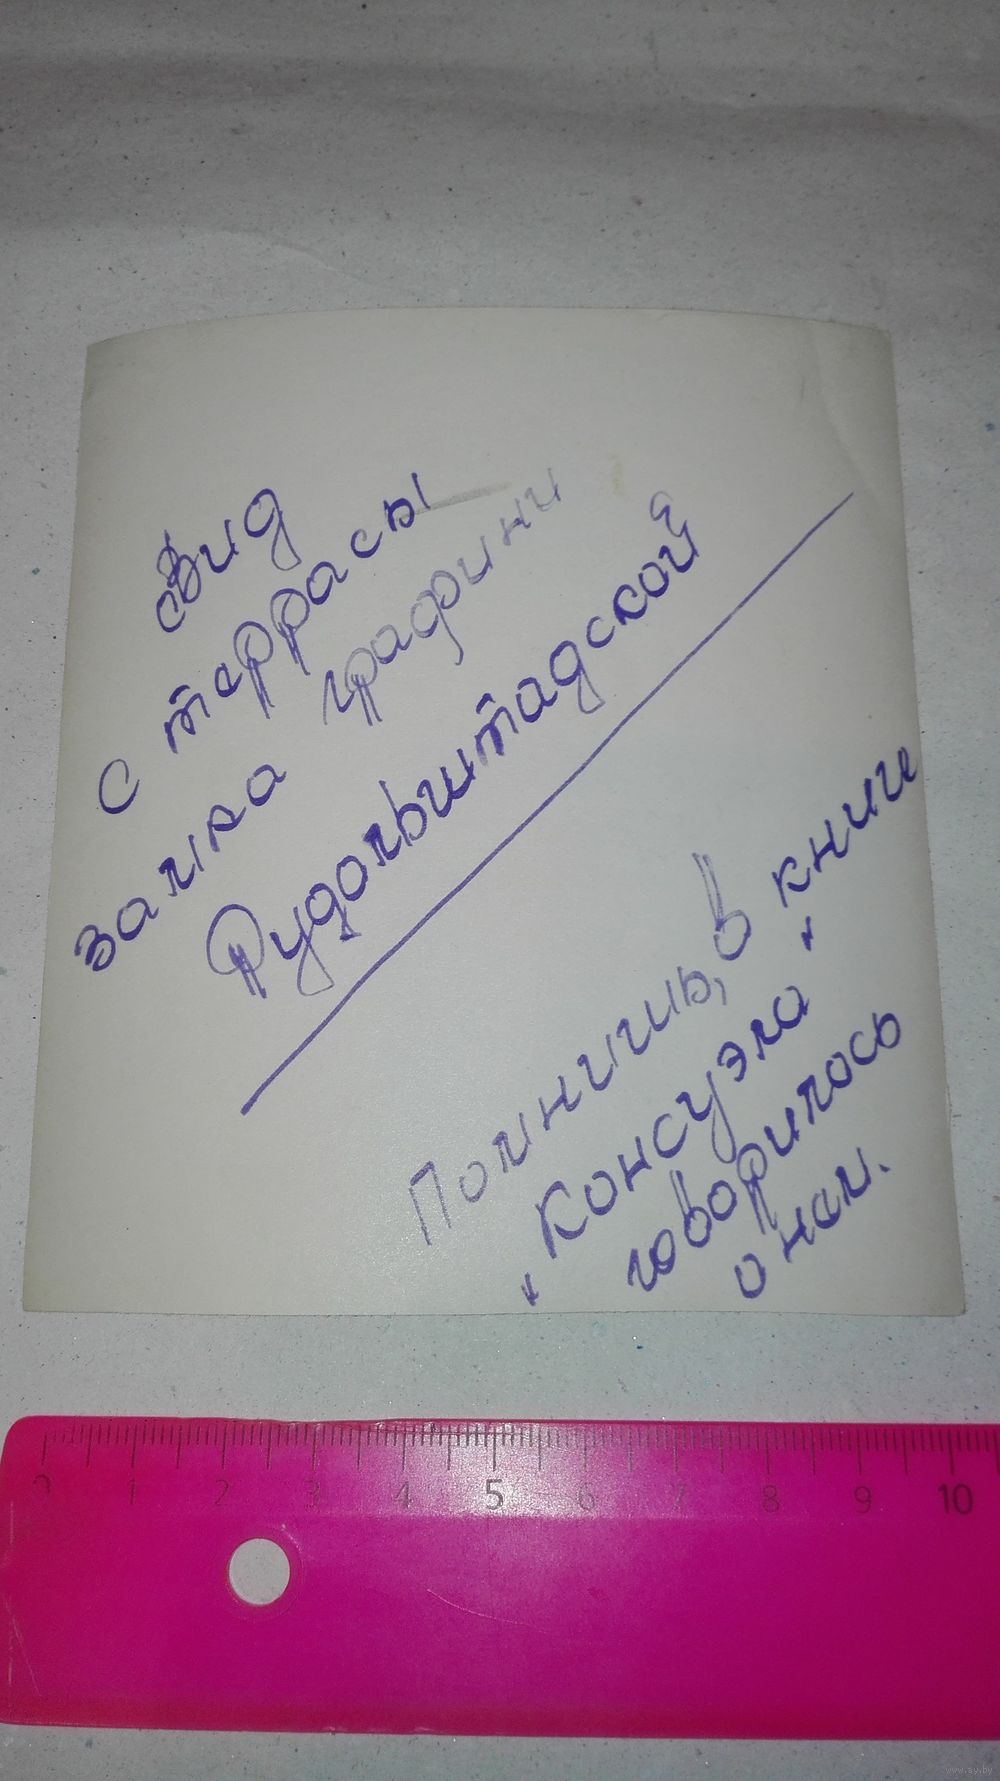 Вид
с террасы
замка графини
Рудольштадской
Помнишь, в книги
"Консуэла"
говорилось
о нем.
0 1 2 3 4 5 6 7 8 9 10
www.ay.by